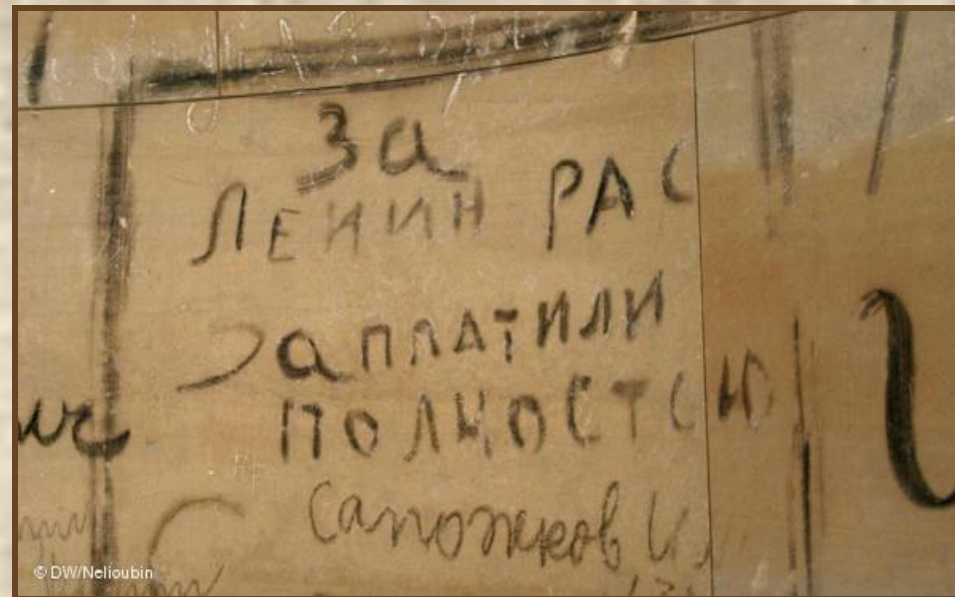 За
ЛЕНИН РАС
Заплатили
ПОЛНОСТЬЮ
Сапожков И.
© DW/Nelioubin